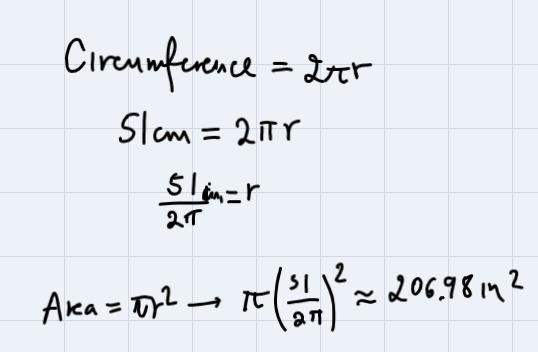 Circumference = 2πr
51cm = 2πr
51in/2π = r
Area = πr² → π(51/2π)² ≈ 206.98 in²